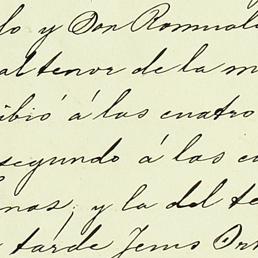 lo y Don Romual
al tenor de la m
ibió á las cuatro
segundo á las c
nas, y la del te
tarde Jesus Or